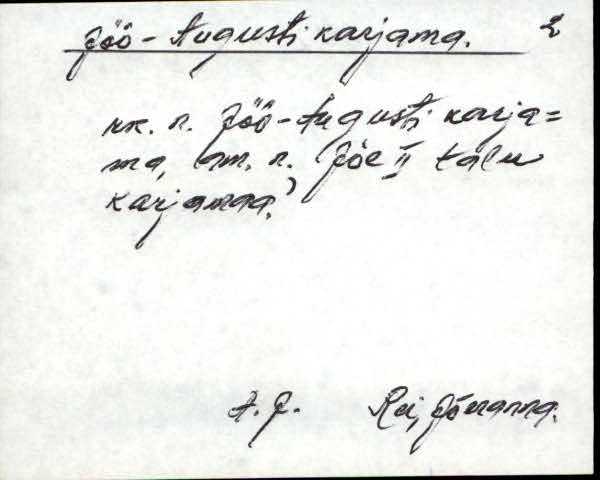 Jõõ-Augusti karjama. 2
rk. n. Jõõ-Augusti karja=
ma, am. n. Jõe II talu
karjamaa.
A. J. Rei, Jõesama.